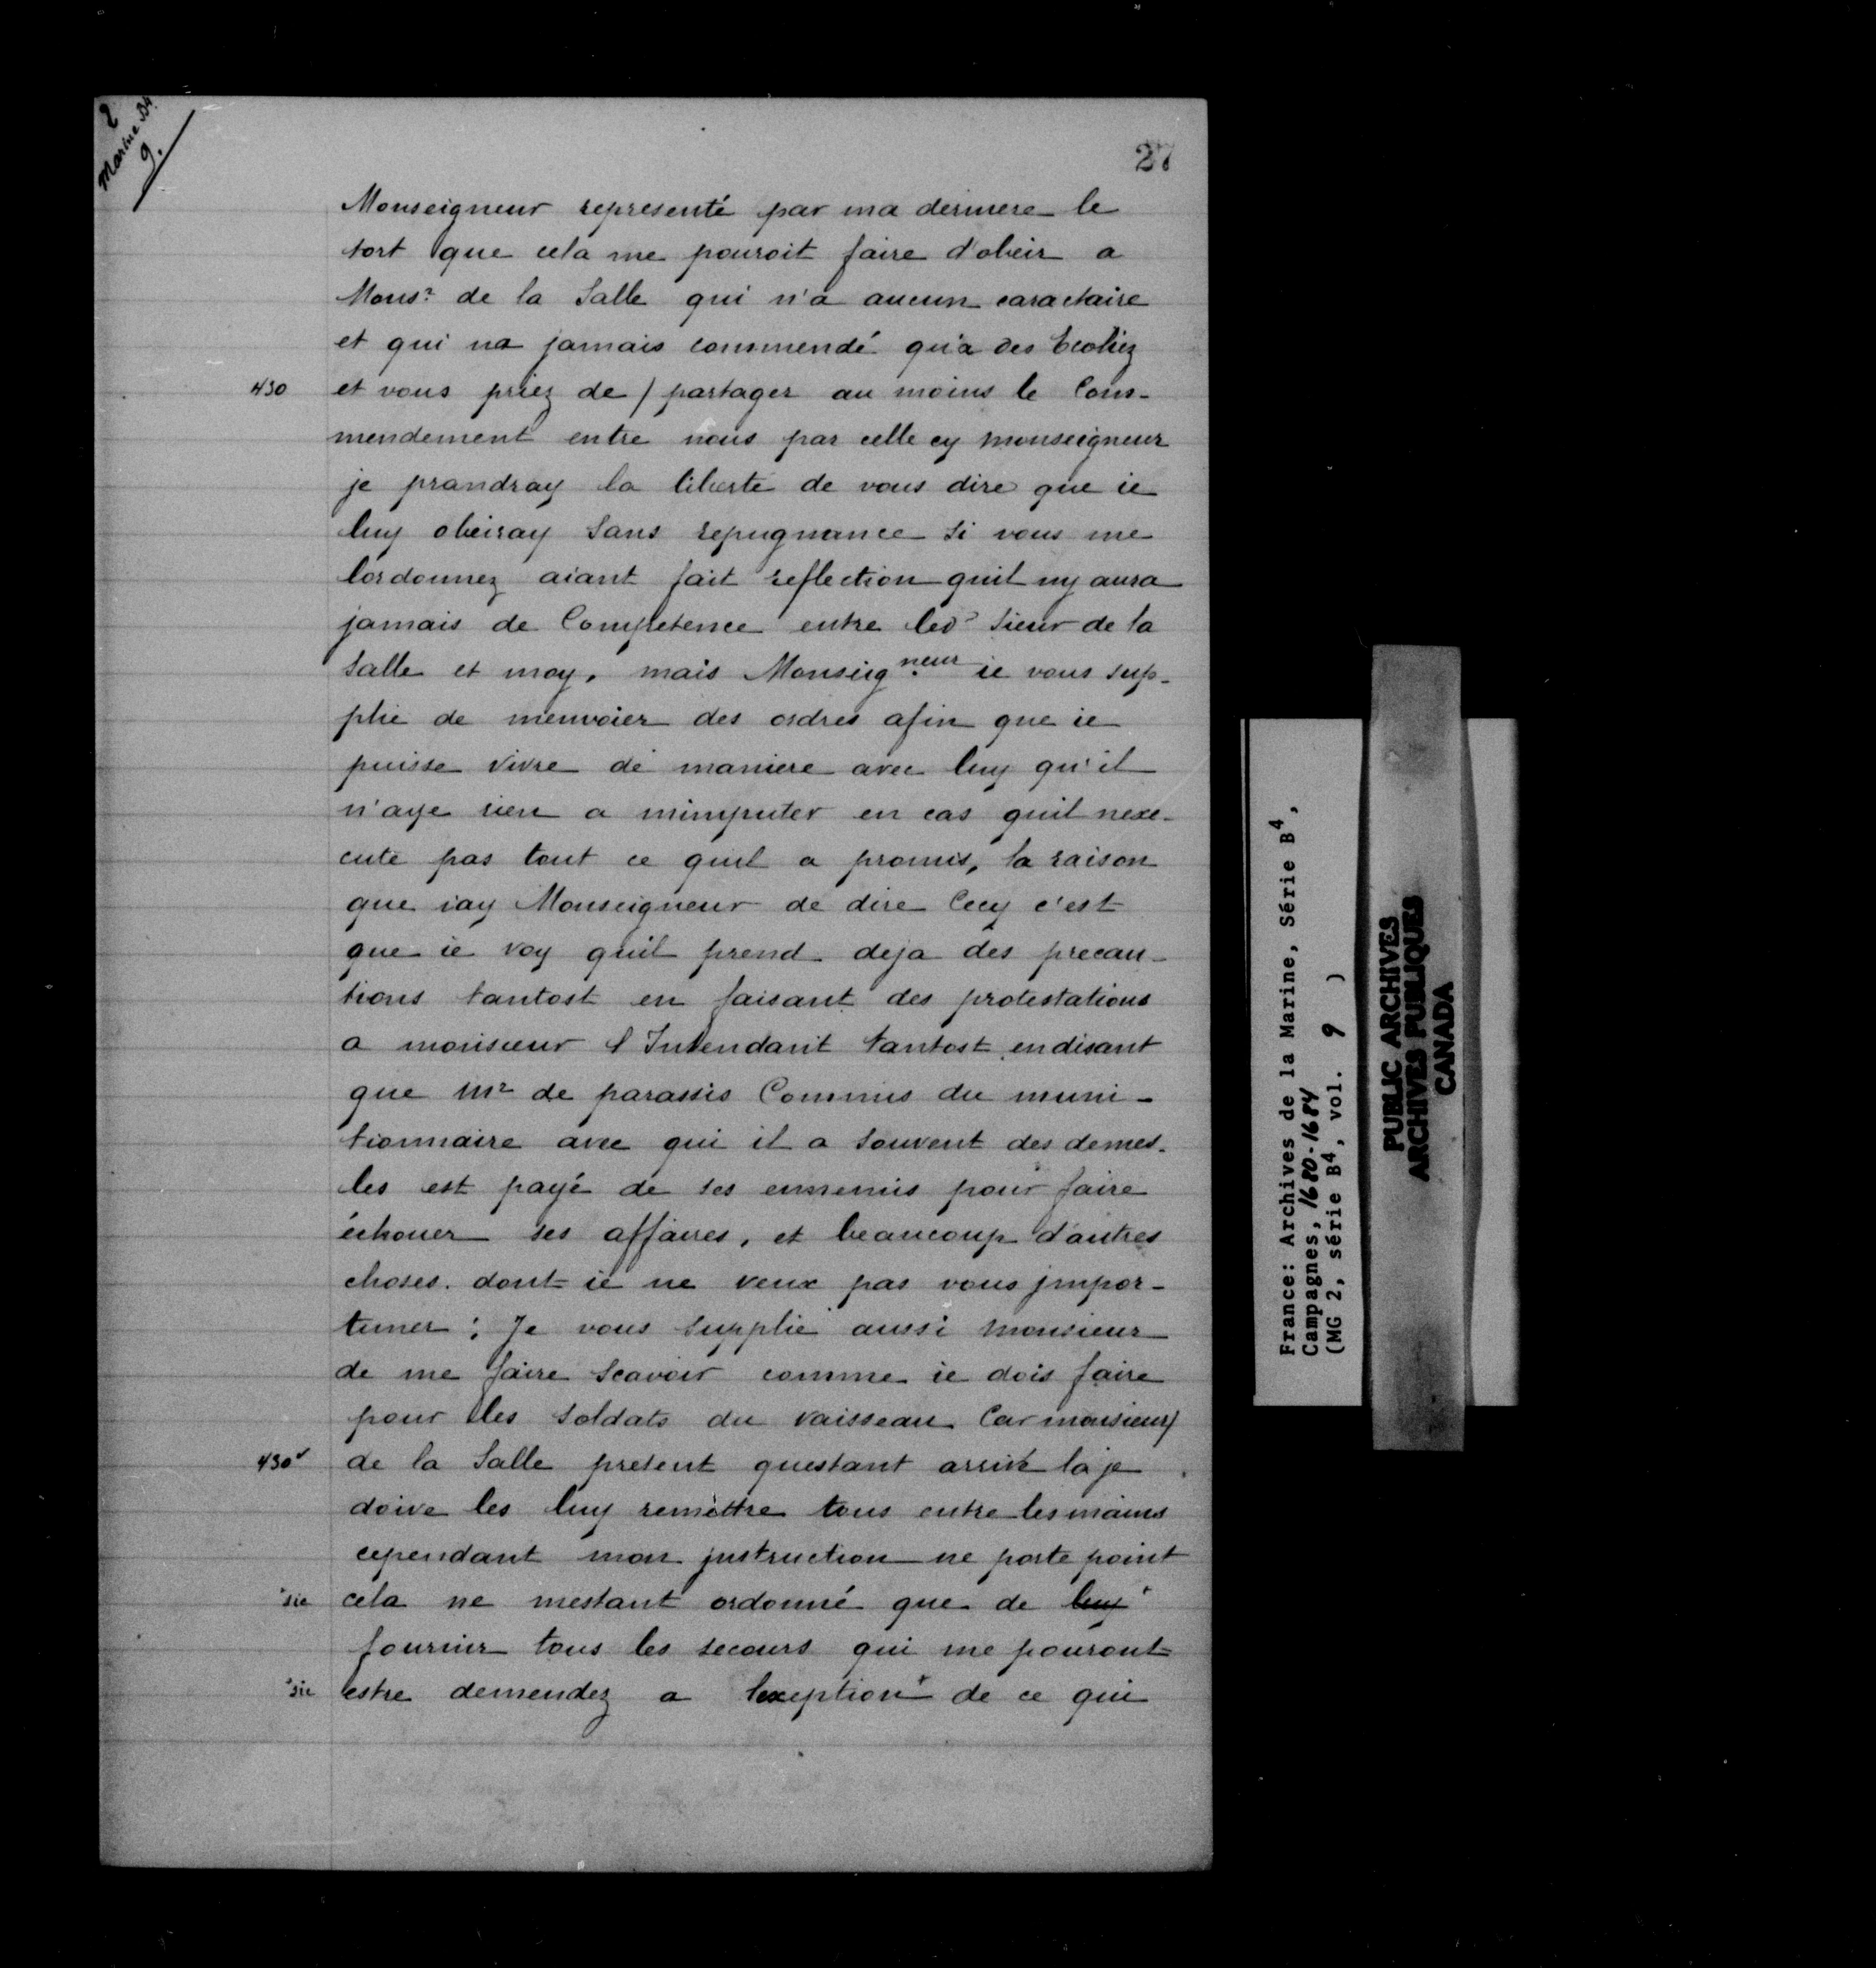 2
Marine B4.
9.
27
Monseigneur representé par ma derniere le
tort que cela me pouroit faire d'obeir a
Monsr de la Salle qui n'a aucun caractaire
et qui na jamais commendé qu'a des Ecoliez
430 et vous priez de / partager au moins le Com-
mendement entre nous par celle cy monseigneur
je prandray la liberté de vous dire que ie
luy obeiray Sans repugnance Si vous me
lordonnez aiant fait reflection quil ny aura
jamais de Competence entre led Sieur de la
Salle et moy, mais Monseigneur ie vous sup-
plie de menvoier des ordres afin que ie
puisse vivre de maniere avec luy qu'il
n'aye rien a mimputer en cas quil nexe-
cute pas tout ce quil a promis, la raison
que iay Monseigneur de dire Cecy c'est
que ie voy quil prend deja des precau-
tions tantost en faisant des protestations
a monsieur l'Intendant tantost en disant
que Mr de parassis Commis du muni-
tionnaire avec qui il a Souvent des demes-
les est payé de ses ennemis pour faire
échouer ses affaires, et beaucoup d'autres
choses. dont ie ne veux pas vous jmpor-
tuner ; Je vous Supplie aussi monsieur
de me faire Scavoir comme ie dois faire
pour les Soldats du vaisseau Car monsieur/
430v de la Salle pretent questant arrivé la je
doive les luy remettre tous entre les mains
cependant mon jnstruction ne porte point
sic cela ne mestant ordonné que de luy
fournir tous les secours qui me pouront
sic estre demendez a lexeption de ce qui
France: Archives de la Marine, Série B4,
Campagnes, 1680-1684
(MG 2, série B4, vol. 9 )
PUBLIC ARCHIVES
ARCHIVES PUBLIQUES
CANADA